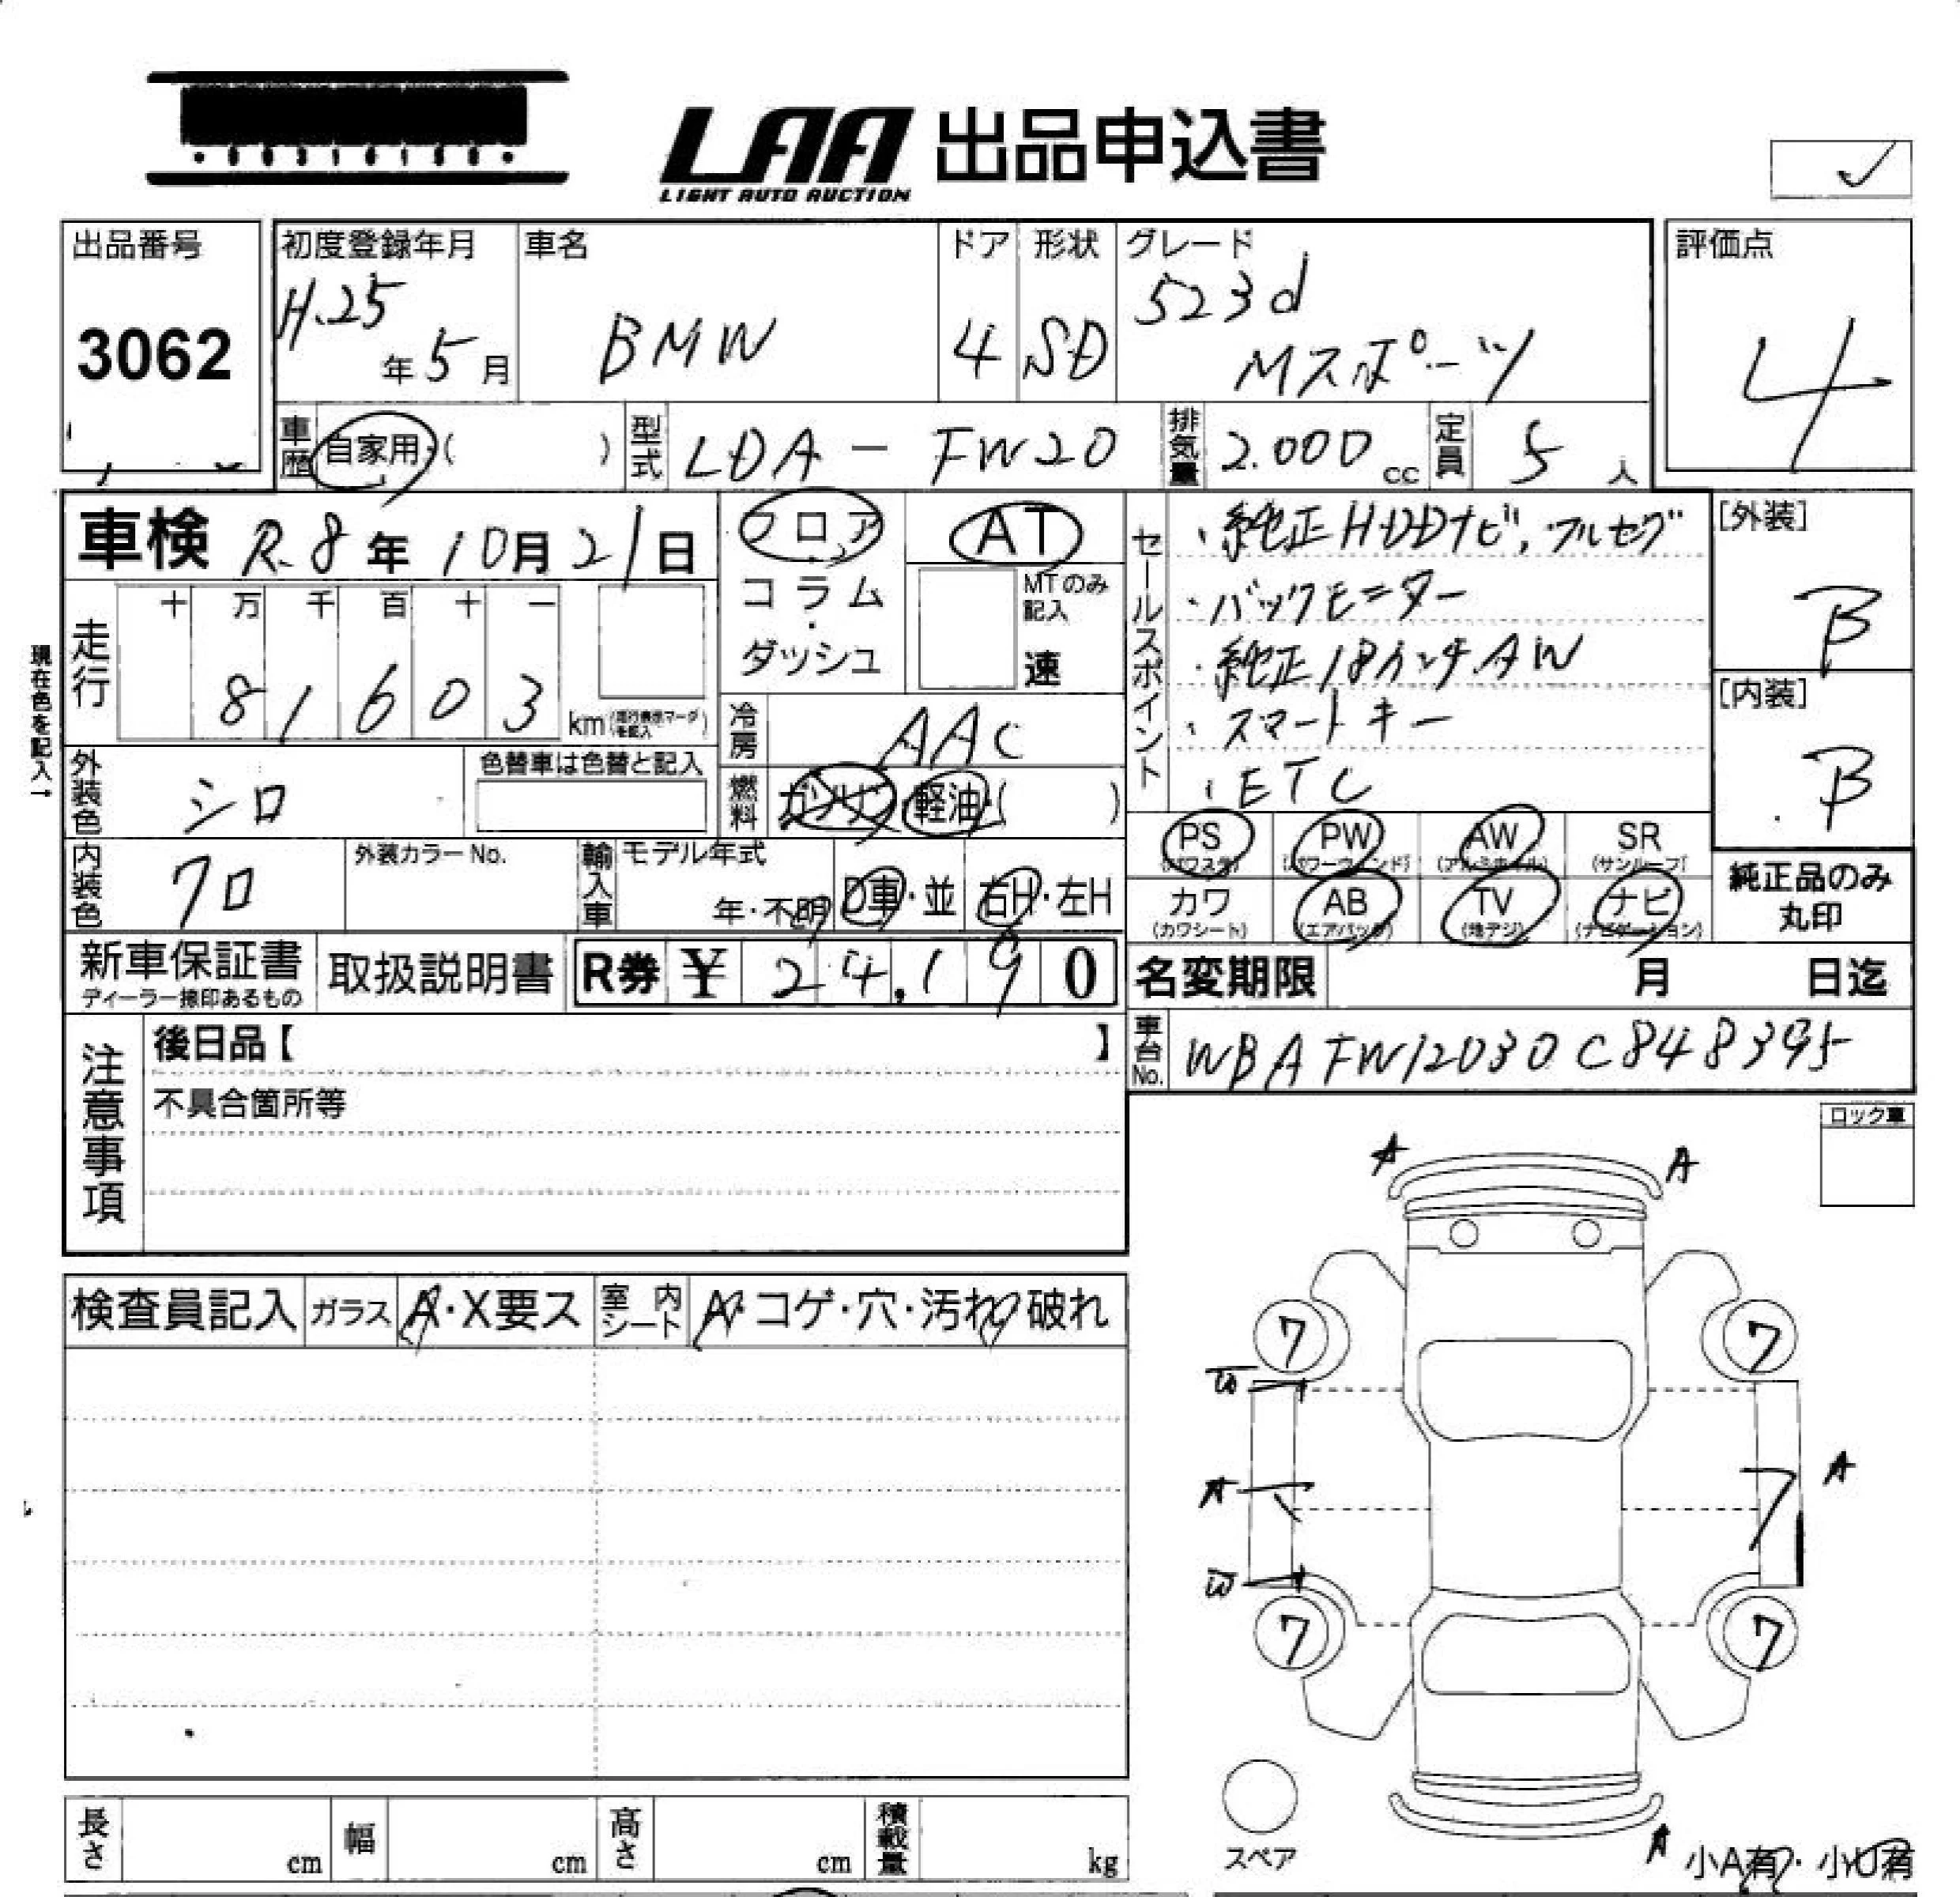 LAA 出品申込書
LIGHT AUTO AUCTION
出品番号
3062
初度登録年月
H.25年5月
車名
BMW
ドア
4
形状
SD
グレード
523d
Mスポーツ
評価点
4
車歴 自家用・( )
型式 LDA-FW20
排気量 2.000cc
定員 5人
車検 R.8年10月21日
フロア
コラム
・
ダッシュ
AT
MTのみ記入
速
現在色を記入→
走行
十 万 千 百 十 一
8 1 6 0 3 km
冷房 AAC
燃料 ガソリン・軽油・( )
外装色 シロ
色替車は色替と記入
内装色 クロ
外装カラーNo.
輸入車 モデル年式
年・不明
D車・並
右H・左H
セールスポイント
・純正HDDナビ,フルセグ
・バックモニター
・純正18インチAW
・スマートキー
・ETC
[外装]
B
[内装]
B
PS (パワステ)
PW (パワーウィンド)
AW (アルミホイル)
SR (サンルーフ)
カワ (カワシート)
AB (エアバック)
TV (地デジ)
ナビ (ナビゲーション)
純正品のみ
丸印
新車保証書
ディーラー捺印あるもの
取扱説明書
R券 ¥ 24,190
名変期限 月 日迄
車台No. WBAFW12030C848395
注意事項
後日品【 】
不具合箇所等
ロック車
検査員記入 ガラス A・X要ス 室内シート A・コゲ・穴・汚れ・破れ
A A
7 7
W
A A
W
7 7
スペア
A
小A有・小U有
長さ cm 幅 cm 高さ cm 積載量 kg